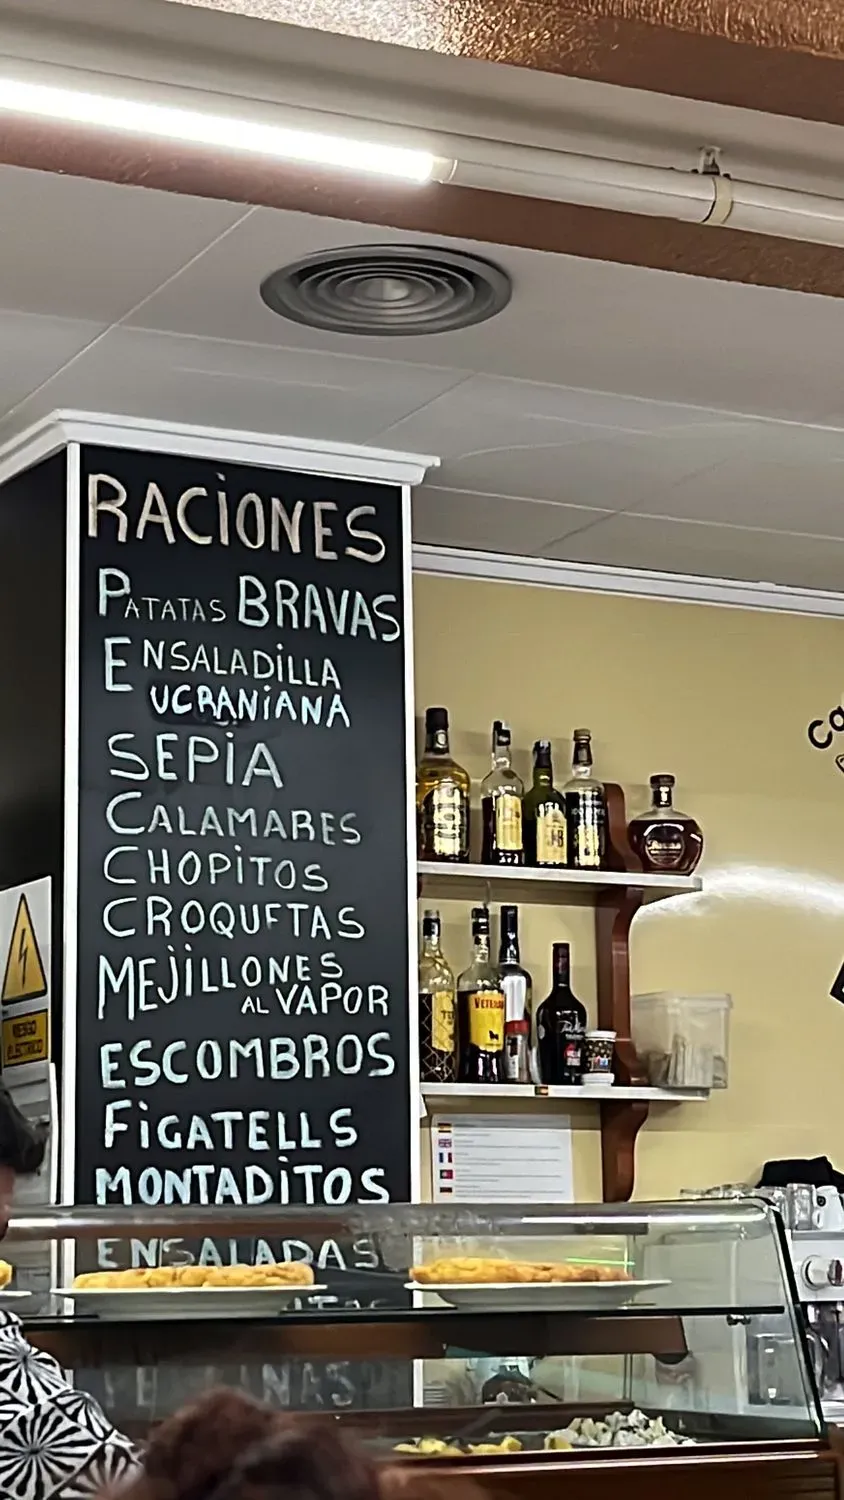 RACIONES
PATATAS BRAVAS
ENSALADILLA
UCRANIANA
SEPIA
CALAMARES
CHOPITOS
CROQUETAS
MEJILLONES
AL VAPOR
ESCOMBROS
FIGATELLS
MONTADITOS
ENSALADAS
RIESGO
ELÉCTRICO
J&B
VETERANO
Ca